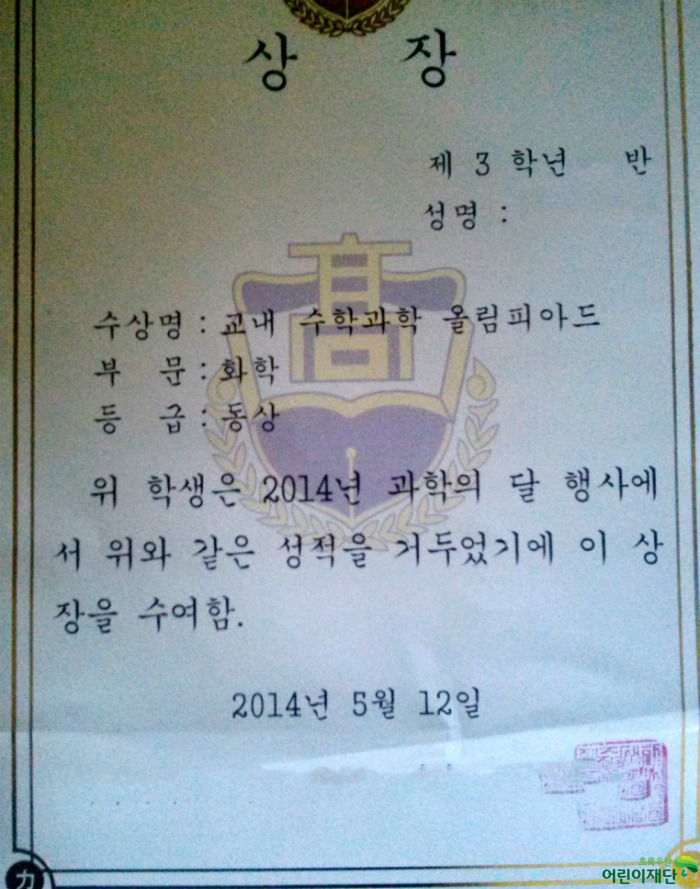 상 장
제 3 학년 반
성명 :
수상명 : 교내 수학과학 올림피아드
부 문 : 화학
등 급 : 동상
위 학생은 2014년 과학의 달 행사에
서 위와 같은 성적을 거두었기에 이 상
장을 수여함.
2014년 5월 12일
高
초록우산
어린이재단